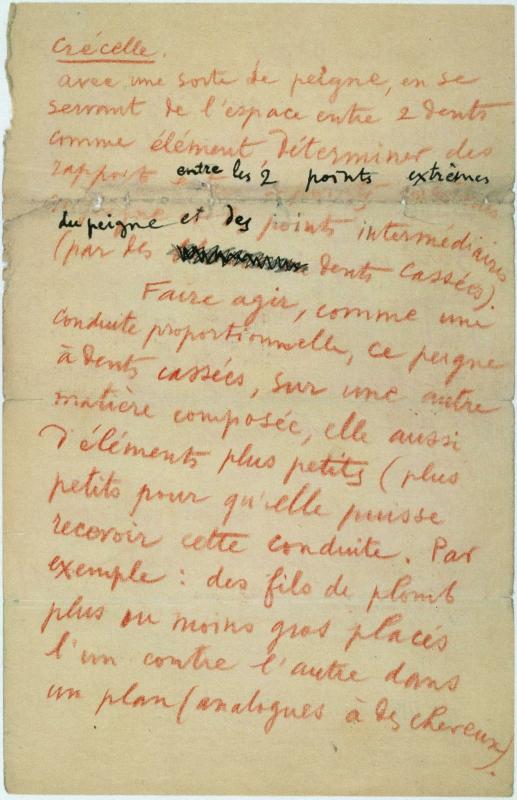 Crécelle.
avec une sorte de peigne, en se
servant de l'espace entre 2 dents
comme élément déterminer des
rapports entre les 2 points extrêmes
du peigne et des points intermédiaires
(par des dents cassées).
Faire agir, comme une
conduite proportionnelle, ce peigne
à dents cassées, sur une autre
matière composée, elle aussi
d'éléments plus petits (plus
petits pour qu'elle puisse
recevoir cette conduite. Par
exemple : des fils de plomb
plus ou moins gros placés
l'un contre l'autre dans
un plan (analogues à des cheveux).